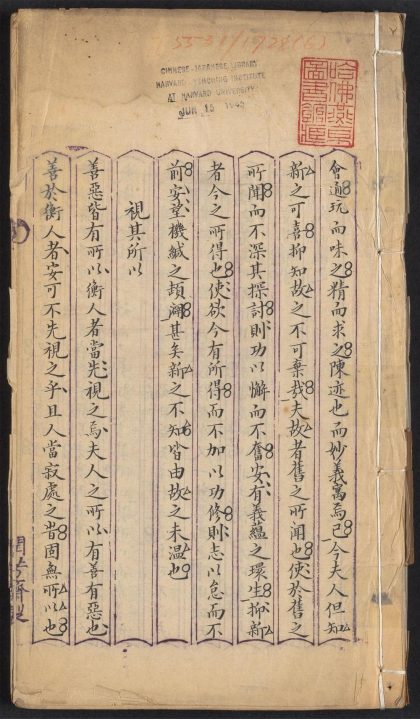 CHINESE-JAPANESE LIBRARY
HARVARD-YENCHING INSTITUTE
AT HARVARD UNIVERSITY
JUN 15
哈佛燕京
圖書館印
會通玩而味之精而求之陳迹也而妙義寓焉已今夫人但知
新之可喜抑知故之不可棄哉夫故者舊之所聞也使於舊之
所聞而不深其探討則功以懈而不奮安有義蘊之環生抑新
者今之所得也使欲今有所得而不加以功修則志以怠而不
前安望機緘之頻甚矣新之不知皆由故之未溫也
視其所以
善惡皆有所以衡人者當先視之焉夫人之所以有善有惡也
善於衡人者安可不先視之乎且人當寂處之旹固無所以也